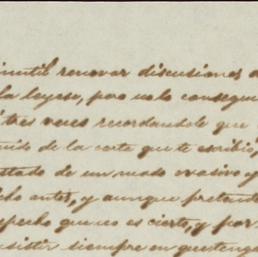 inutil renovar discusiones
la leyese, pero no lo consegui
tres veces recordandole que
de la carta que te escribi,
de un modo evasivo y
antes, y aunque
que no es cierto, y por
siempre en que tenga